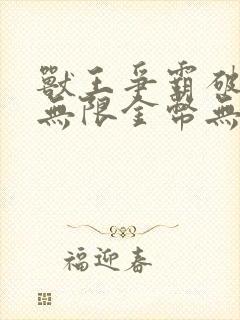 獸王爭霸破
無限金幣無
福迎春